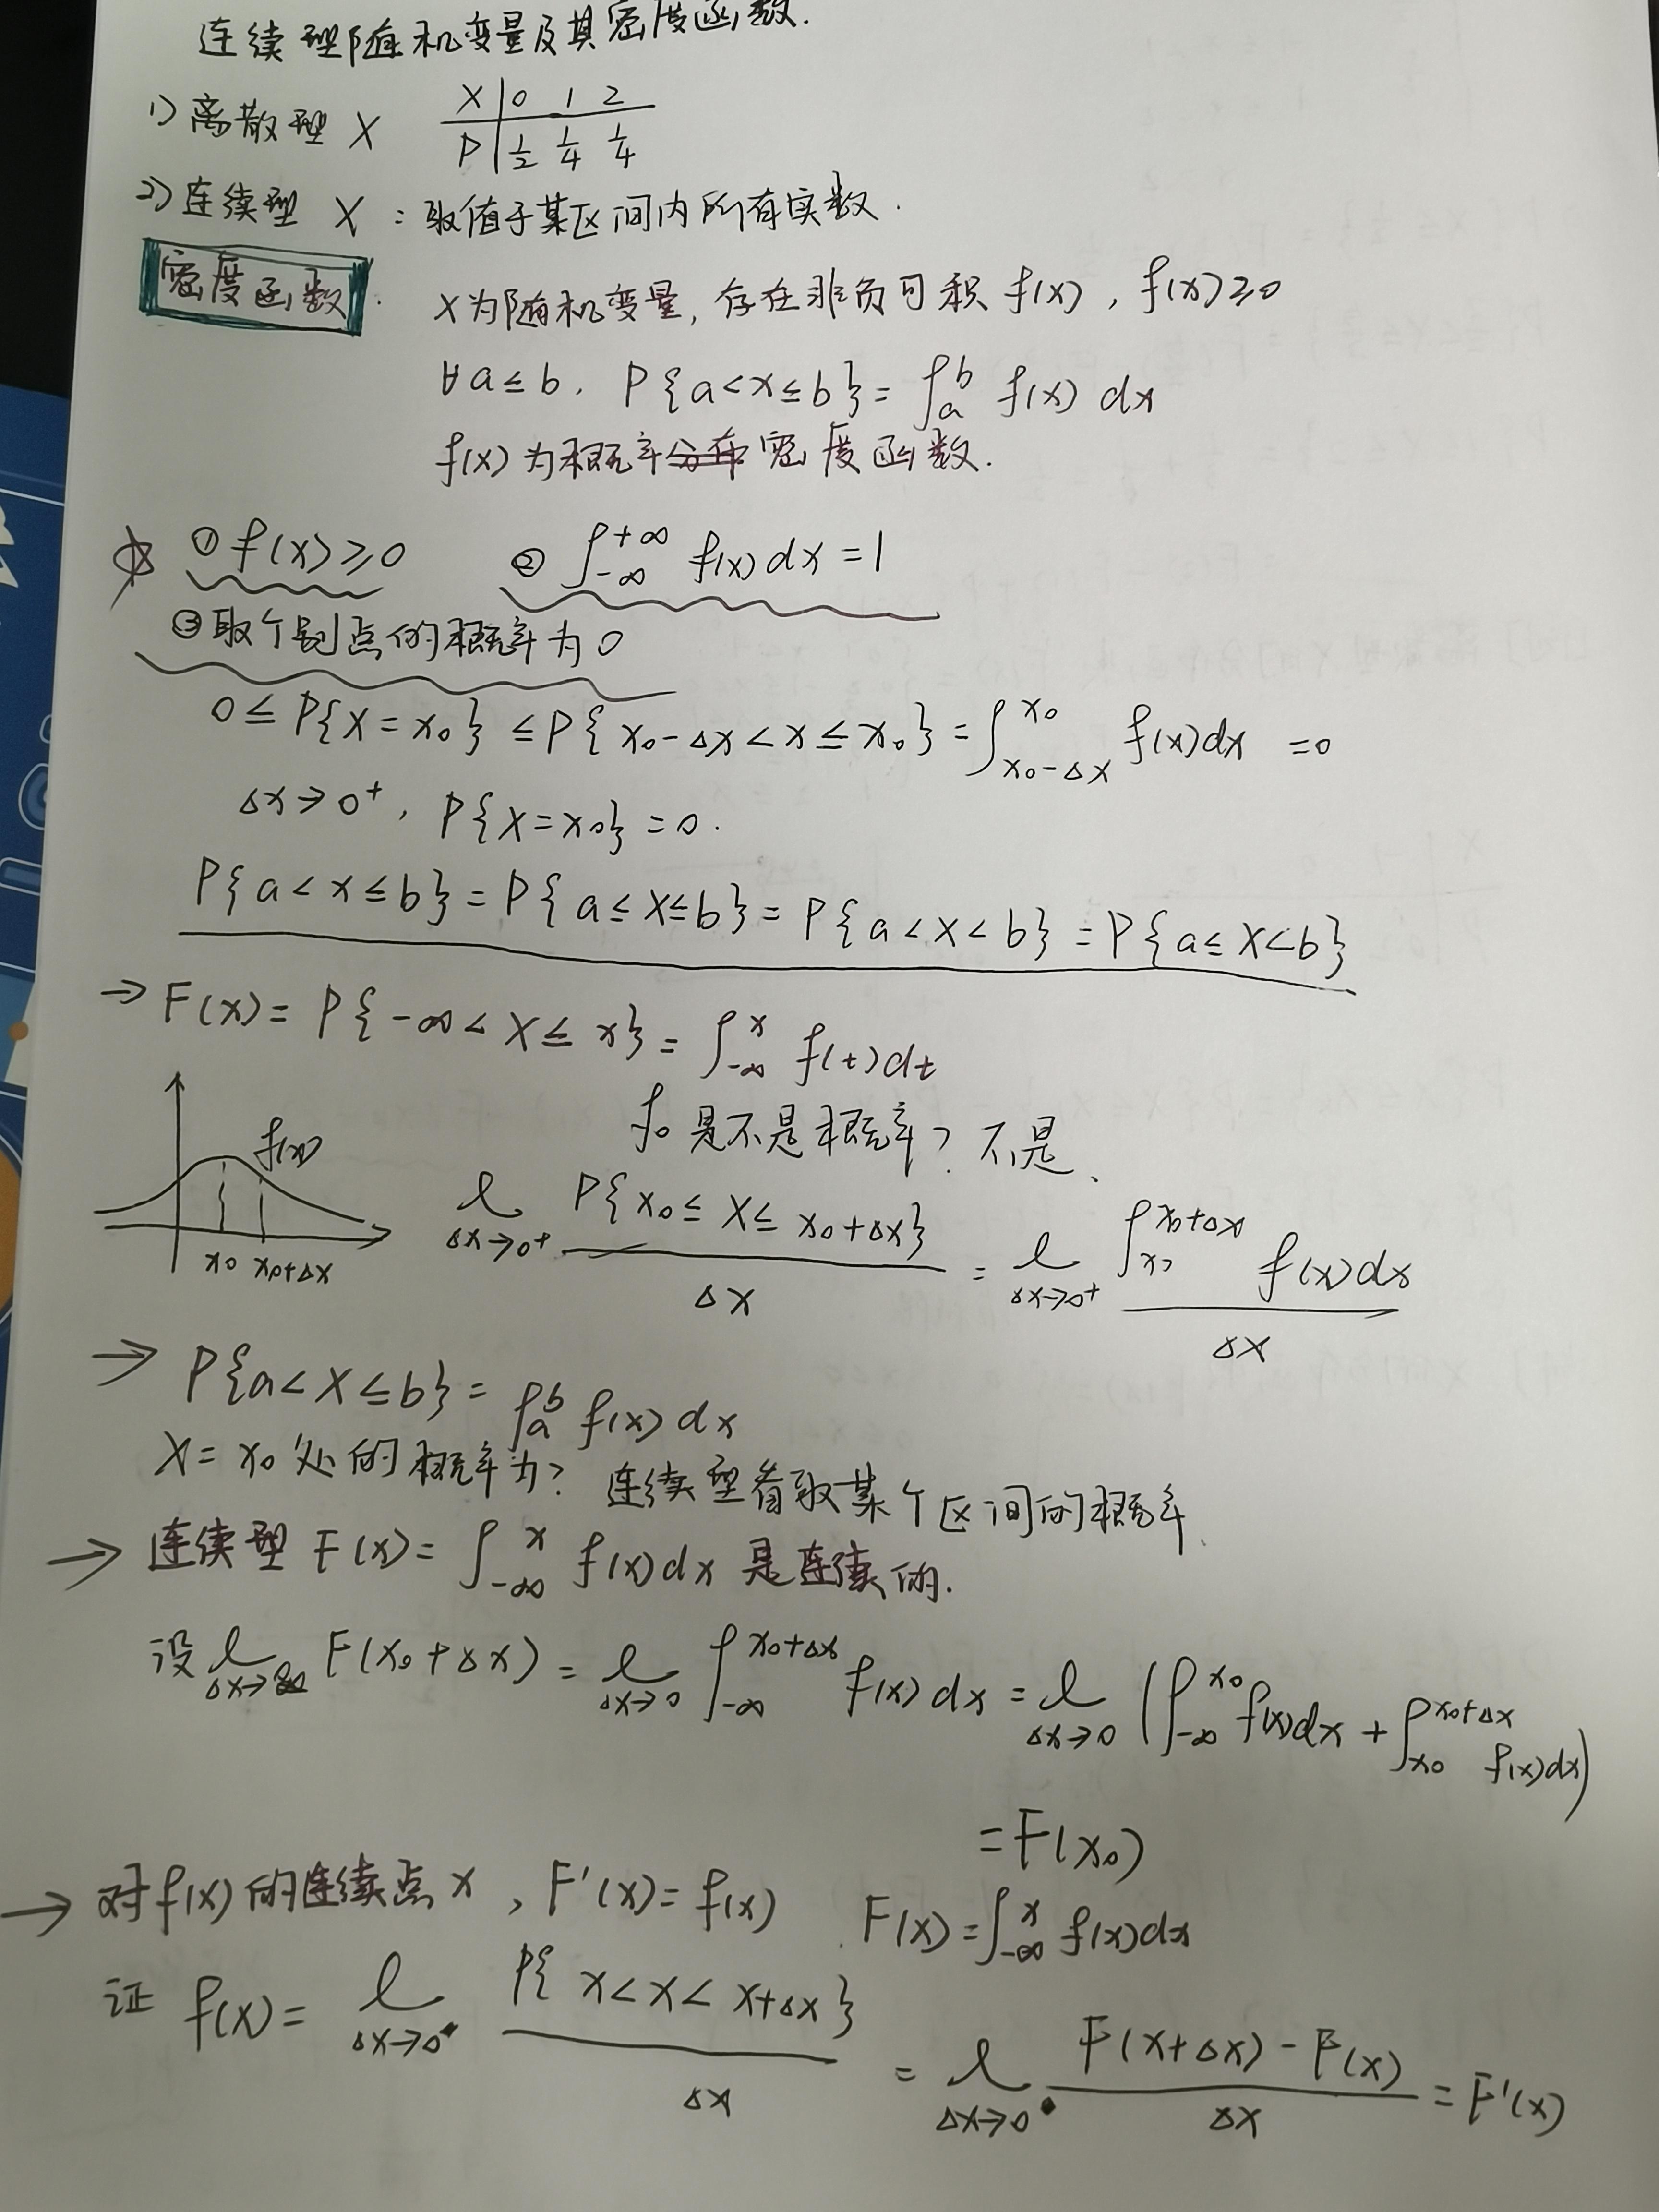 连续型随机变量及其密度函数.
1) 离散型 X  X | 0 1 2
P | 1/2 1/4 1/4
2) 连续型 X : 取值于某区间内所有实数.
密度函数. X为随机变量, 存在非负可积 f(x), f(x)≥0
∀a≤b, P{a<x≤b}=∫_a^b f(x) dx
f(x)为概率分布密度函数.
☆ ① f(x)≥0 ② ∫_{-∞}^{+∞} f(x)dx=1
③取个别点的概率为0
0≤P{X=x₀}≤P{x₀-Δx<x≤x₀}=∫_{x₀-Δx}^{x₀} f(x)dx =0
Δx→0⁺, P{X=x₀}=0.
P{a<x≤b}=P{a≤X≤b}=P{a<X<b}=P{a≤X<b}
→ F(x)=P{-∞<X≤x}=∫_{-∞}^x f(t)dt
f₀ 是不是概率? 不是.
f(x)
x₀ x₀+Δx
l_{Δx→0⁺} P{x₀≤X≤x₀+Δx}/Δx = l_{Δx→0⁺} ∫_{x₀}^{x₀+Δx} f(x)dx/Δx
→ P{a<X≤b}=∫_a^b f(x)dx
X=x₀处的概率为? 连续型看取某个区间的概率.
→ 连续型 F(x)=∫_{-∞}^x f(x)dx 是连续的.
设 l_{Δx→0} F(x₀+Δx)=l_{Δx→0} ∫_{-∞}^{x₀+Δx} f(x)dx=l_{Δx→0} (∫_{-∞}^{x₀} f(x)dx+∫_{x₀}^{x₀+Δx} f(x)dx)
=F(x₀)
→ 对f(x)的连续点x, F'(x)=f(x). F(x)=∫_{-∞}^x f(x)dx
证 f(x)=l_{Δx→0} P{x<X<x+Δx}/Δx = l_{Δx→0} F(x+Δx)-F(x)/Δx = F'(x)